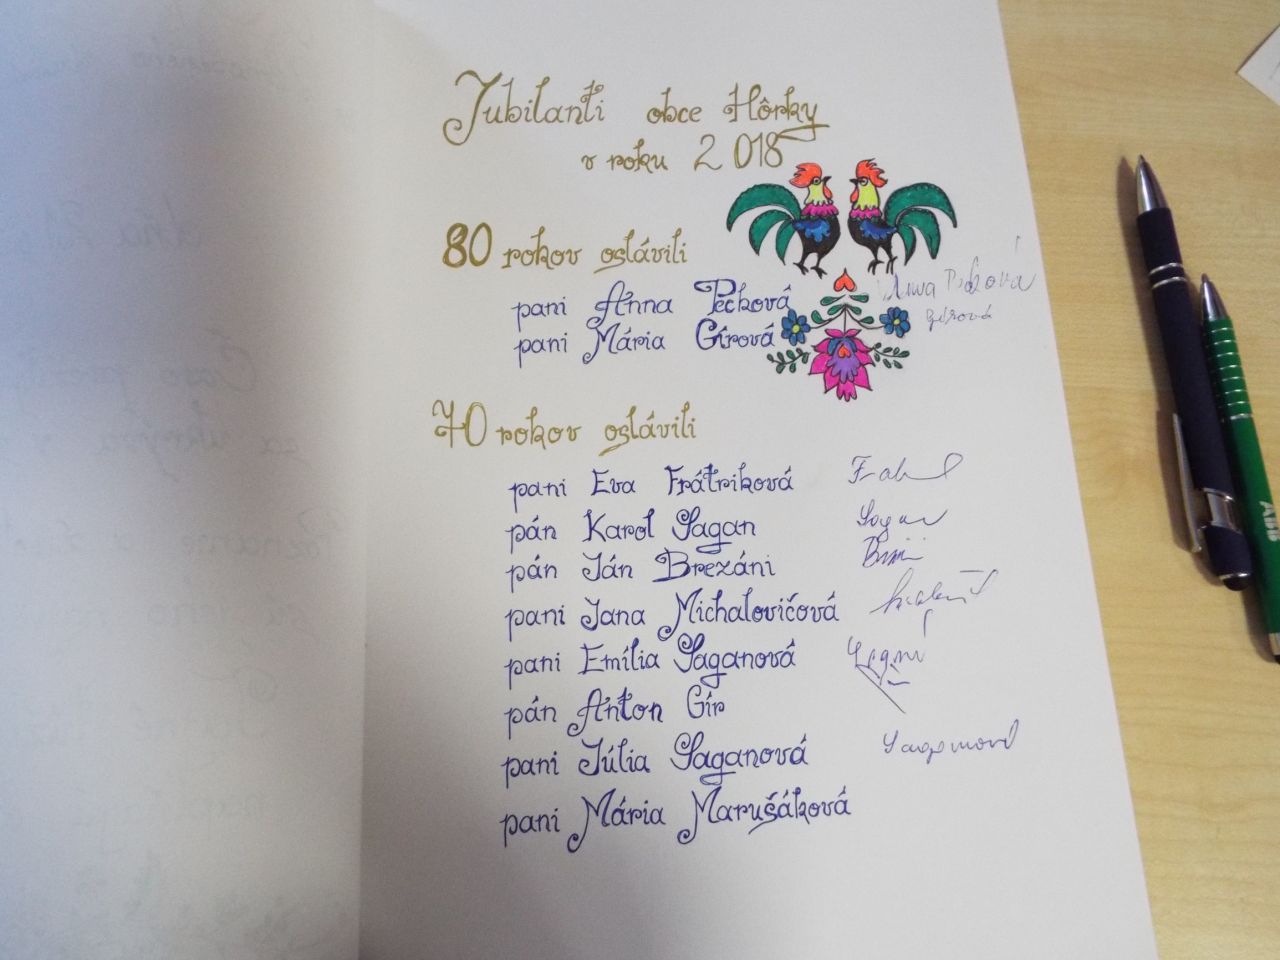 Jubilanti obce Hôrky
v roku 2018
80 rokov oslávili
pani Anna Pecková
Anna Pecková
pani Mária Gírová
Gírová
70 rokov oslávili
pani Eva Frátriková
pán Karol Sagan
Sagan
pán Ján Brezáni
pani Jana Michalovičová
pani Emília Saganová
pán Anton Gír
pani Júlia Saganová
Saganová
pani Mária Marušáková
ABB